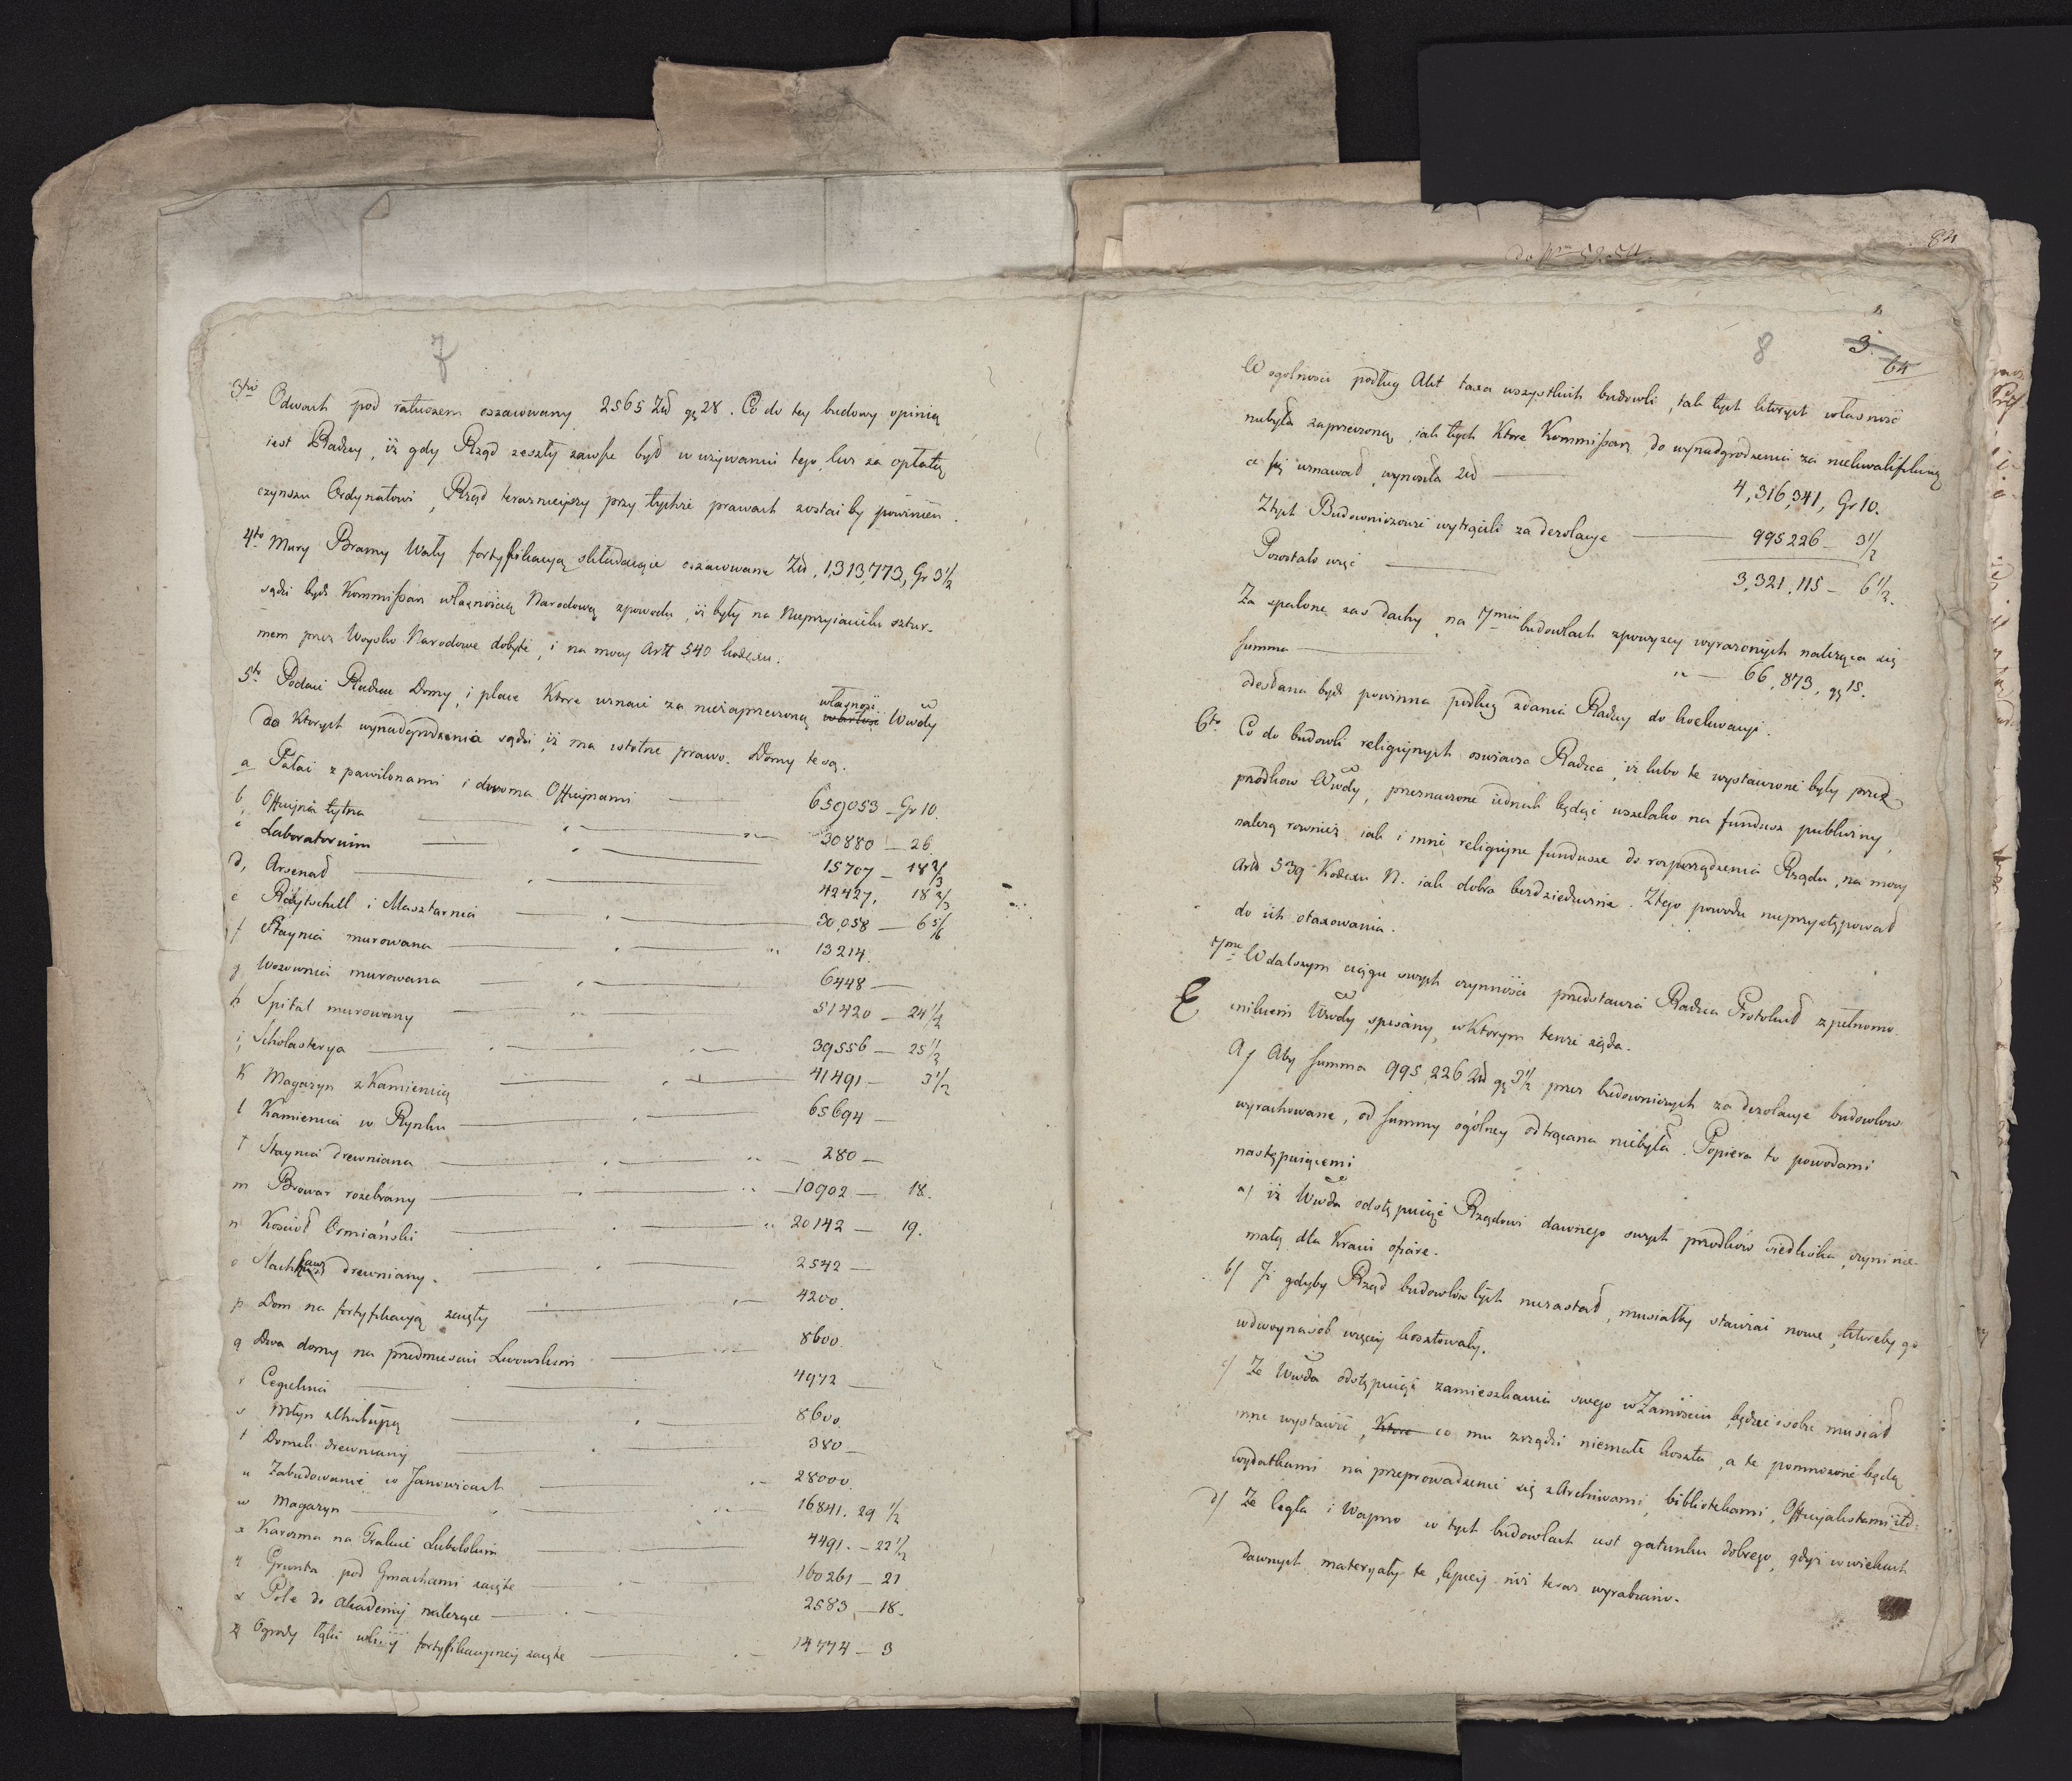 7
3tio Odwach pod ratuszem oszacowany 2565 Zł gr 28. Co do tey budowy opinią
iest Radzcy, iż gdy Rząd zeszły zawsze był w używaniu tego, lecz za opłatą
czynszu Ordynatowi, Rząd teraznieyszy przy tychże prawach zostać by powinien.
4to Mury Bramy Wały fortyfikacyą składaiące oszacowane Zł. 1,313,773, Gr 3 1/2
sądzi bydź Kommissarz własnością Narodową zpowodu, iż były na Nieprzyiacielu sztur-
mem przez Woysko Narodowe dobyte, i na mocy Artt 540 kodexu.
5to Podaie Radzca Domy, i place Ktore uznaie za niezaprzeczoną własność wartość Wwdy
do Ktorych wynadgrodzenia sądzi iż ma istotne prawo. Domy te są.
a Pałac z pawilonami i dwoma Officynami 659053 — Gr 10.
b, Officyna tylna 30880 — 26
c Laboratorium 15707 — 18 2/3
d, Arsenał 42427, 18 2/3
e Raytschell i Masztarnia 30,058 — 6 5/6
f Staynia murowana 13214.
g Wozownia murowana 6448 —
h Spital murowany 51420 — 24 1/2
i, Scholasterya 39556 — 25 1/2
K Magazyn z Kamienicą 41491 — 3 1/2
l Kamienica w Rynku 65694 —
ł Staynia drewniana 280 —
m Browar rozebrany 10902 — 18.
n Kościoł Ormiański 20142 — 19.
o drewniany. 2542 —
p Dom na fortyfikacyą zaięty 4200.
q Dwa domy na przedmieściu Lwowskiem 8600.
r Cegielnia 4972 —
s Młyn z Chałupą 8600
t Domek drewniany 380 —
u Zabudowanie w Janowicach 28000.
w Magazyn 16841. 29 1/2
x Karczma na Trakcie Lubelskim 4491. — 22 1/2
y Grunta pod Gmachami zaięte 160261 — 21
z Pole do Akademij należące 2583 — 18.
ż Ogrody łąki fortyfikacyiney zaięte 14774 — 3
do 52.54. 84
8
4
3.
64
W ogolności podług Akt taxa wszystkich budowli, tak tych których własność
niebyła zaprzeczoną, iak tych Ktore Kommissarz do wynadgrodzenia za niekwalifikuią
ce się uznawał, wynosiła Zł 4,316,341, Gr 10.
Ztych Budowniczowie wytrącili za dezolacye 995226 — 3 1/2
Pozostało więc 3,321,115 — 6 1/2.
Za spalone zas dachy na 7miu budowlach zpowyzey wyrażonych należąca się
summa " — 66,873, gr 15.
odesłana bydź powinna podług zdania Radzcy do likwidacyi.
6to Co do budowli religiynych oświadcza Radzca, iż lubo te wystawione były przez
przodkow Wwdy, przeznaczone iednak będąc wszelako na fundusz publiczny,
należą rownież iak i inne religiyne fundusze do rozporządzenia Rządu, na mocy
Artt 539 Kodexu N. iak dobra bezdziedziczne. Ztego powodu nieprzystępował
do ich otaxowania.
7me W dalszym ciągu swych czynności przedstawia Radzca Protokuł z pełnomo
E cnikiem Wwdy spisany, w Ktorym tenże żąda.
A/ Aby Summa 995,226 Zł gr 3 1/2 przez budowniczych za dezolacye budowlow
wyrachowane, od summy ogólney odtrącana niebyła. Popiera to powodami
następuiącemi
a/ iż Wwda odstępuiąc Rządowi dawnego swych przodków siedliska czyni nie-
małą dla Kraiu ofiarę.
b/ Iż gdyby Rząd budowlów tych niezastał, musiałby stawiać nowe, któreby go
wdwoynasob więcey kosztowały.
c/ Ze Wwda odstępuiąc zamieszkania swego w Zamościu będzie sobie musiał
inne wystawić, Ktore co mu zrządzi niemałe koszta, a te pomnożone będą
wydatkami na przeprowadzenie się z Archiwami, bibliotekami, Officyalistami itd.
d/ Ze Cegła i Wapno w tych budowlach iest gatunku dobrego, gdyż w wiekach
dawnych materyały te, lepiey niż teraz wyrabiano.